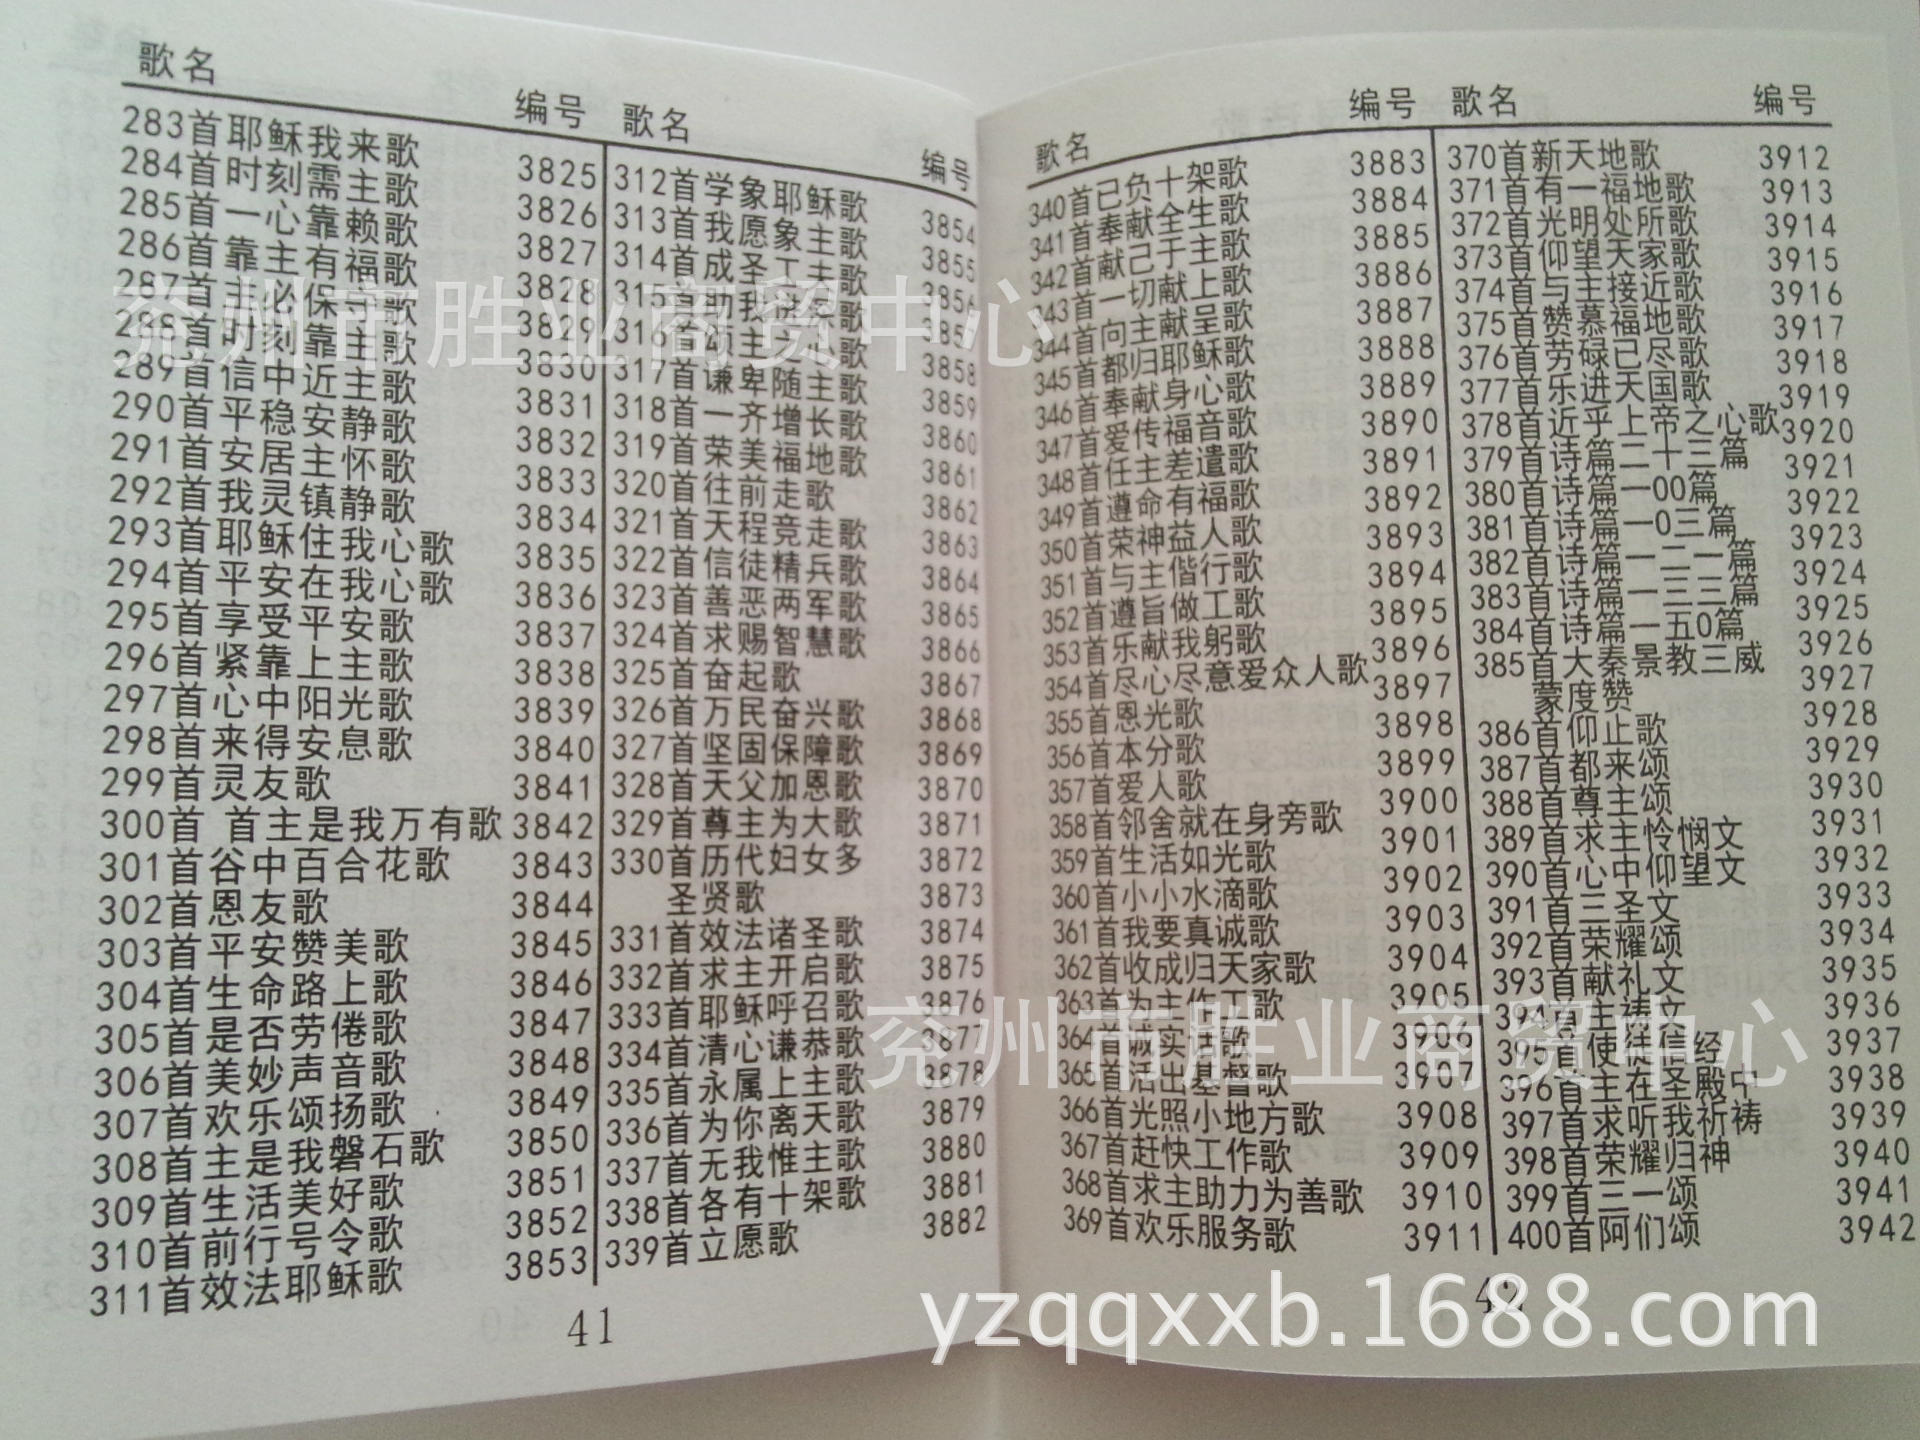 歌名 编号
283首耶稣我来歌 3825
284首时刻需主歌 3826
285首一心靠赖歌 3827
286首靠主有福歌 3828
287首主必保守歌 3829
288首时刻靠主歌 3830
289首信中近主歌 3831
290首平稳安静歌 3832
291首安居主怀歌 3833
292首我灵镇静歌 3834
293首耶稣住我心歌 3835
294首平安在我心歌 3836
295首享受平安歌 3837
296首紧靠上主歌 3838
297首心中阳光歌 3839
298首来得安息歌 3840
299首灵友歌 3841
300首 首主是我万有歌 3842
301首谷中百合花歌 3843
302首恩友歌 3844
303首平安赞美歌 3845
304首生命路上歌 3846
305首是否劳倦歌 3847
306首美妙声音歌 3848
307首欢乐颂扬歌 3849
308首主是我磐石歌 3850
309首生活美好歌 3851
310首前行号令歌 3852
311首效法耶稣歌 3853
歌名 编号
312首学象耶稣歌 3854
313首我愿象主歌 3855
314首成圣工夫歌 3856
315首助我 歌
316首颂主 歌 3858
317首谦卑随主歌 3859
318首一齐增长歌 3860
319首荣美福地歌 3861
320首往前走歌 3862
321首天程竞走歌 3863
322首信徒精兵歌 3864
323首善恶两军歌 3865
324首求赐智慧歌 3866
325首奋起歌 3867
326首万民奋兴歌 3868
327首坚固保障歌 3869
328首天父加恩歌 3870
329首尊主为大歌 3871
330首历代妇女多 3872
圣贤歌 3873
331首效法诸圣歌 3874
332首求主开启歌 3875
333首耶稣呼召歌 3876
334首清心谦恭歌 3877
335首永属上主歌 3878
336首为你离天歌 3879
337首无我惟主歌 3880
338首各有十架歌 3881
339首立愿歌 3882
41
歌名 编号
340首已负十架歌 3883
341首奉献全生歌 3884
342首献己于主歌 3885
343首一切献上歌 3886
344首一向主献呈歌 3887
345首都归耶稣歌 3888
346首奉献身心歌 3889
347首爱传福音歌 3890
348首任主差遣歌 3891
349首遵命有福歌 3892
350首荣神益人歌 3893
351首与主偕行歌 3894
352首遵旨做工歌 3895
353首乐献我躬歌 3896
354首尽心尽意爱众人歌 3897
355首恩光歌 3898
356首本分歌 3899
357首爱人歌 3900
358首邻舍就在身旁歌 3901
359首生活如光歌 3902
360首小小水滴歌 3903
361首我要真诚歌 3904
362首收成归天家歌 3905
363首为主作工歌 3906
364首诚实话歌 3907
365首活出基督歌 3908
366首光照小地方歌 3909
367首赶快工作歌 3910
368首求主助力为善歌 3911
369首欢乐服务歌
歌名 编号
370首新天地歌 3912
371首有一福地歌 3913
372首光明处所歌 3914
373首仰望天家歌 3915
374首与主接近歌 3916
375首赞慕福地歌 3917
376首劳碌已尽歌 3918
377首乐进天国歌 3919
378首近乎上帝之心歌 3920
379首诗篇二十三篇 3921
380首诗篇一00篇 3922
381首诗篇一0三篇 3923
382首诗篇一二一篇 3924
383首诗篇一三三篇 3925
384首诗篇一五0篇 3926
385首大秦景教三威 3927
蒙度赞 3928
386首仰止歌 3929
387首都来颂 3930
388首尊主颂 3931
389首求主怜悯文 3932
390首心中仰望文 3933
391首三圣文 3934
392首荣耀颂 3935
393首献礼文 3936
394首主祷文 3937
395首使徒信经 3938
396首主在圣殿中 3939
397首求听我祈祷 3940
398首荣耀归神 3941
399首三一颂 3942
400首阿们颂
42
兖州市胜业商贸中心
兖州市胜业商贸中心
yzqqxxb.1688.com